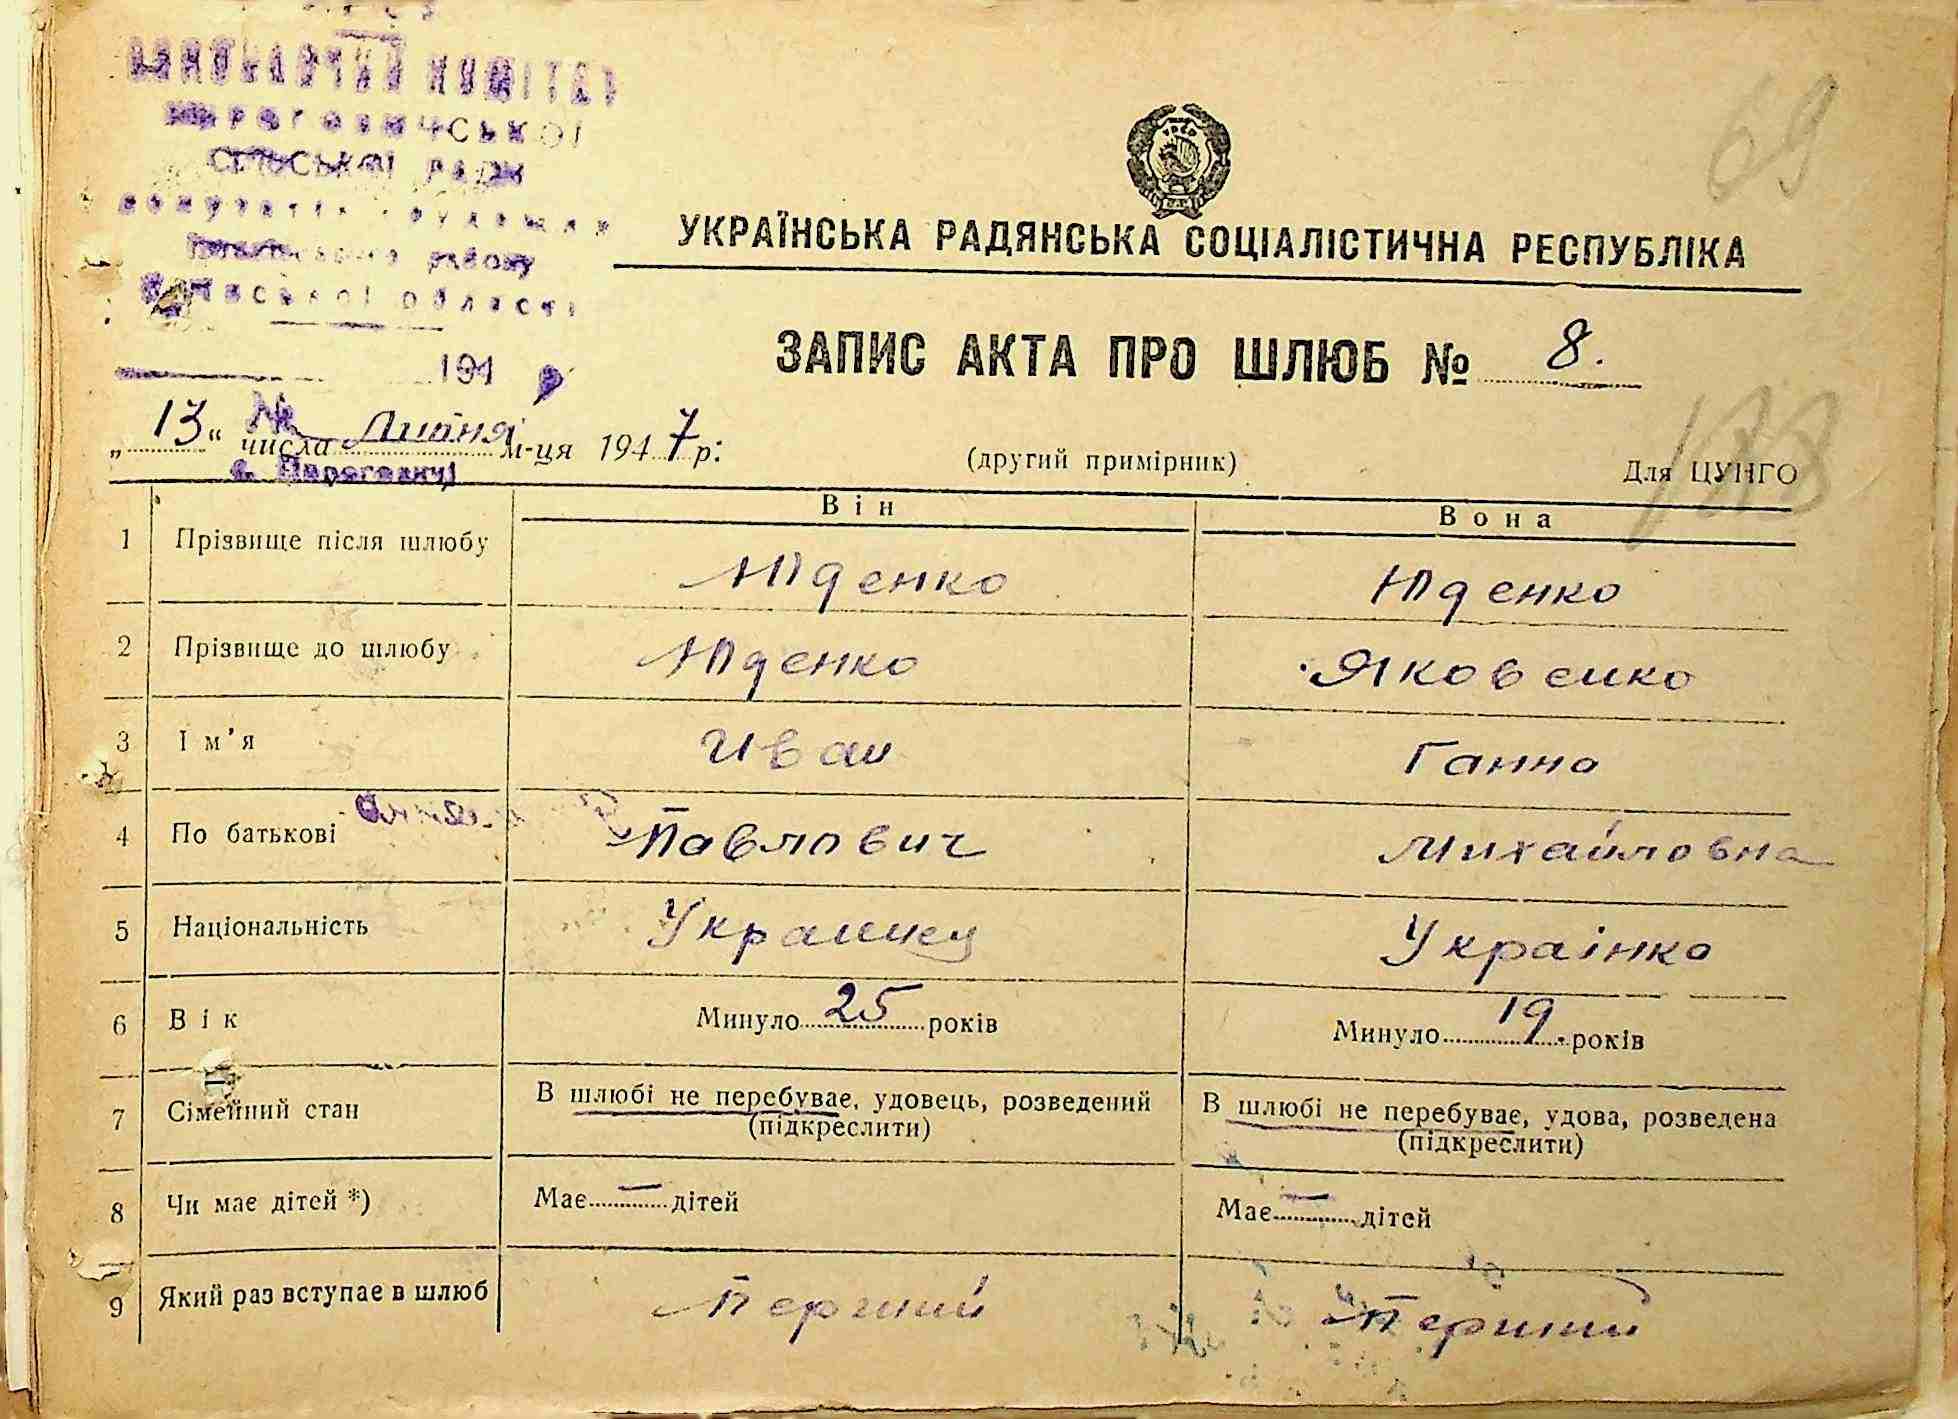 ВИКОНАВЧИЙ КОМІТЕТ
Пироговичської
СІЛЬСЬКОЇ РАДИ
депутатів трудящих
району
Київської області
194
№
с. Пироговичі
69
УКРАЇНСЬКА РАДЯНСЬКА СОЦІАЛІСТИЧНА РЕСПУБЛІКА
ЗАПИС АКТА ПРО ШЛЮБ № 8.
„13“ числа Липня м-ця 1947 р:
(другий примірник)
Для ЦУНГО
188
Він Вона
1 Прізвище після шлюбу Юденко Юденко
2 Прізвище до шлюбу Юденко Яковенко
3 Ім'я Иван Ганна
4 По батькові Павлович Михайловна
5 Національність Украинец Українка
6 Вік Минуло 25 років Минуло 19. років
7 Сімейний стан В шлюбі не перебуває, удовець, розведений (підкреслити) В шлюбі не перебуває, удова, розведена (підкреслити)
8 Чи має дітей *) Має — дітей Має — дітей
9 Який раз вступає в шлюб Перший Перший